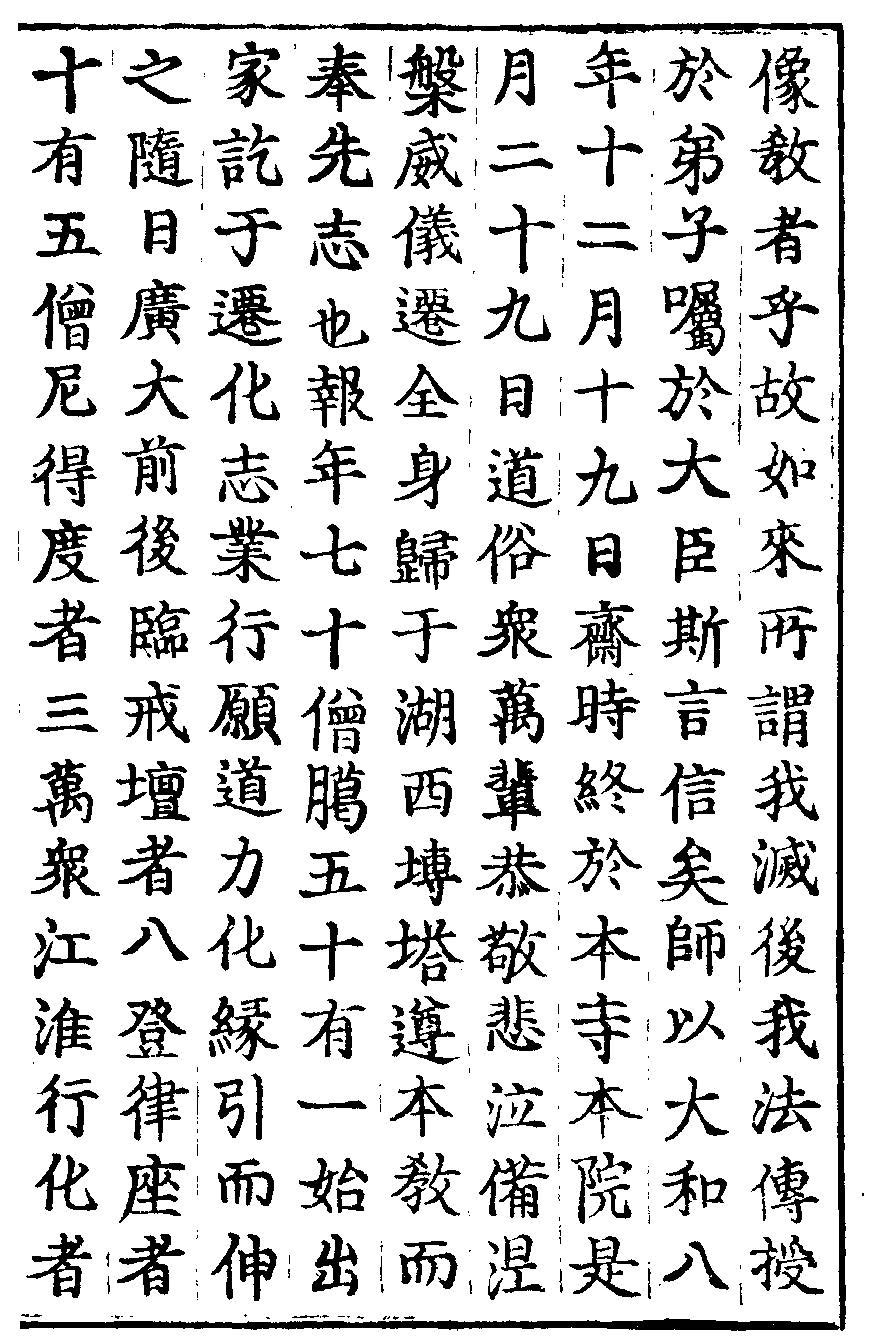 像教者乎故如來所謂我滅後我法傳授
於弟子囑於大臣斯言信矣師以大和八
年十二月十九日齋時終於本寺本院是
月二十九日道俗衆萬輩恭敬悲泣備涅
槃威儀遷全身歸于湖西塼塔遵本教而
奉先志也報年七十僧臈五十有一始出
家訖于遷化志業行願道力化縁引而伸
之隨日廣大前後臨戒壇者八登律座者
十有五僧尼得度者三萬衆江淮行化者